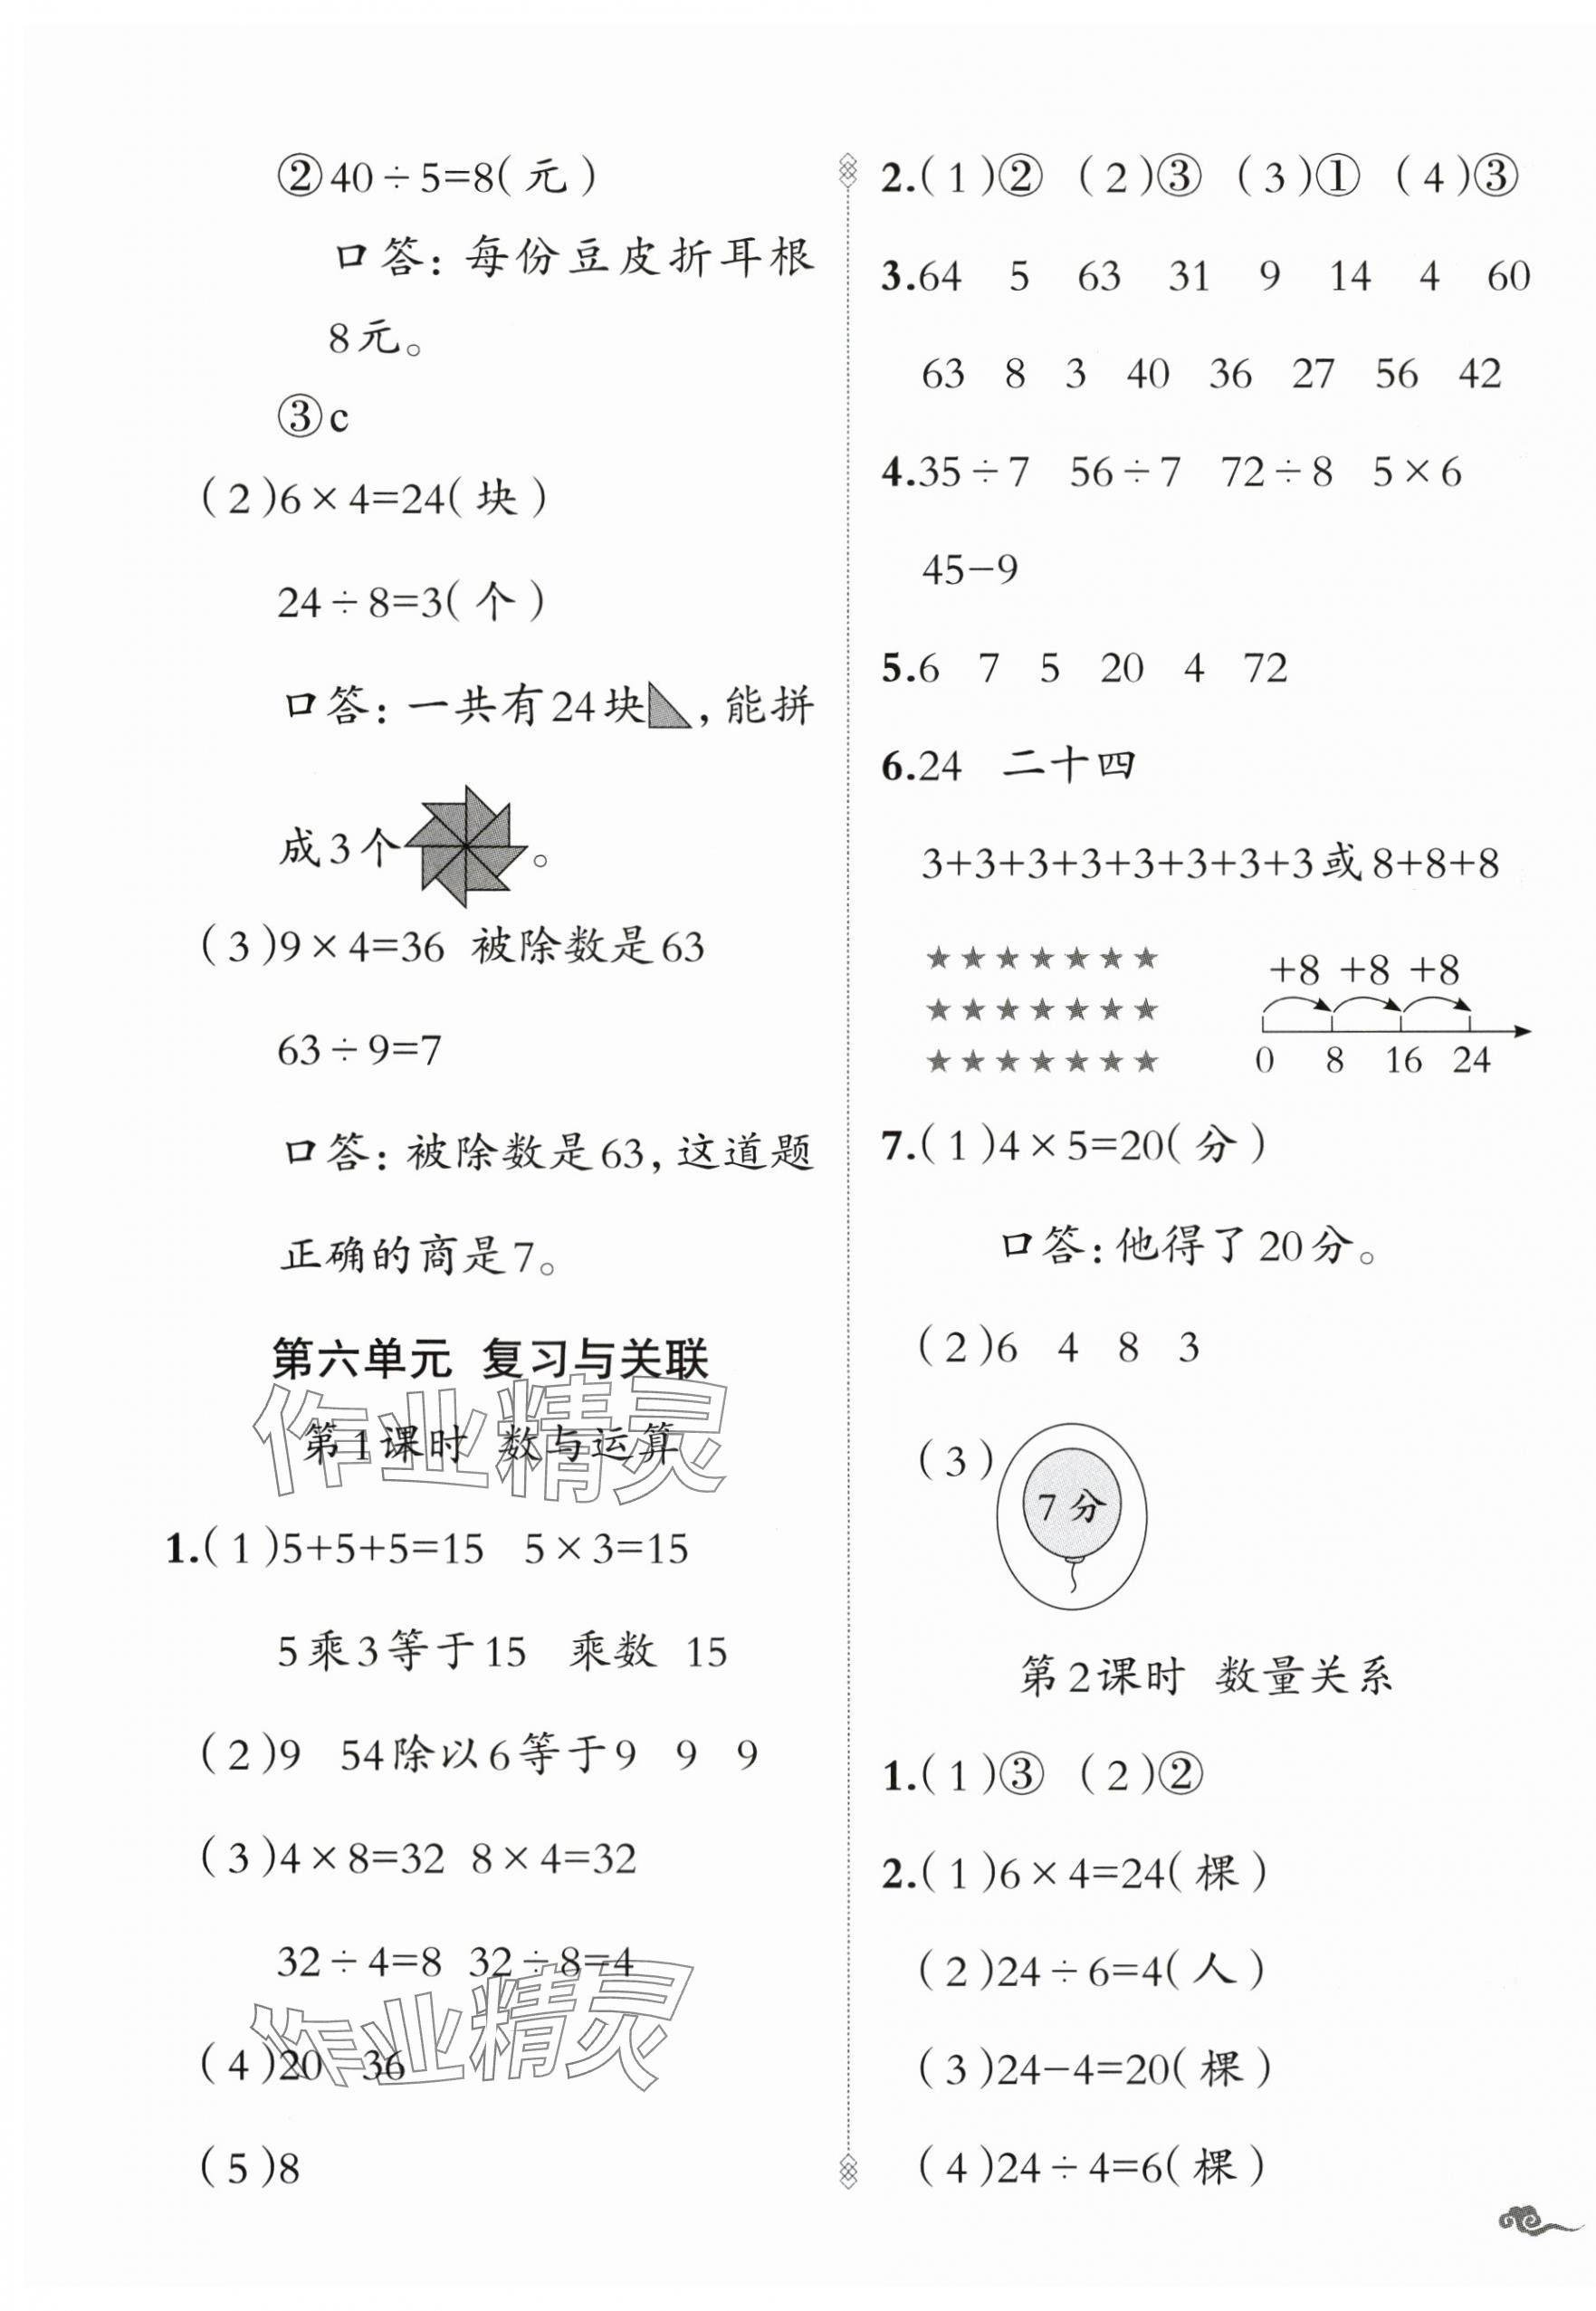 ②40÷5=8(元)
口答：每份豆皮折耳根
8元。
③c
(2)6×4=24(块)
24÷8=3(个)
口答：一共有24块，能拼
成3个。
(3)9×4=36 被除数是63
63÷9=7
口答：被除数是63，这道题
正确的商是7。
第六单元 复习与关联
第1课时 数与运算
作业精灵
1.(1)5+5+5=15 5×3=15
5乘3等于15 乘数 15
(2)9 54除以6等于9 9 9
(3)4×8=32 8×4=32
32÷4=8 32÷8=4
作业精灵
(4)20 36
(5)8
2.(1)② (2)③ (3)① (4)③
3.64 5 63 31 9 14 4 60
63 8 3 40 36 27 56 42
4.35÷7 56÷7 72÷8 5×6
45-9
5.6 7 5 20 4 72
6.24 二十四
3+3+3+3+3+3+3+3或8+8+8
+8 +8 +8
0 8 16 24
7.(1)4×5=20(分)
口答：他得了20分。
(2)6 4 8 3
(3)
7分
第2课时 数量关系
1.(1)③ (2)②
2.(1)6×4=24(棵)
(2)24÷6=4(人)
(3)24-4=20(棵)
(4)24÷4=6(棵)